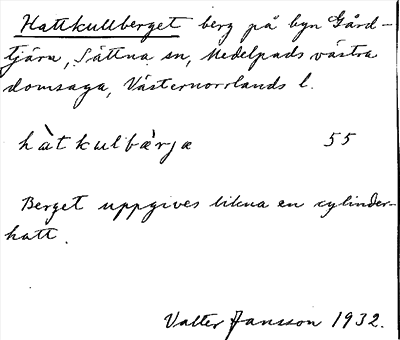 Hattkullberget berg på byn Gård-
tjärn, Sättna sn, Medelpads västra
domsaga, Västernorrlands l.
hàtkulbæ̀rjæ 55
Berget uppgives likna en cylinder-
hatt.
Valter Jansson 1932.